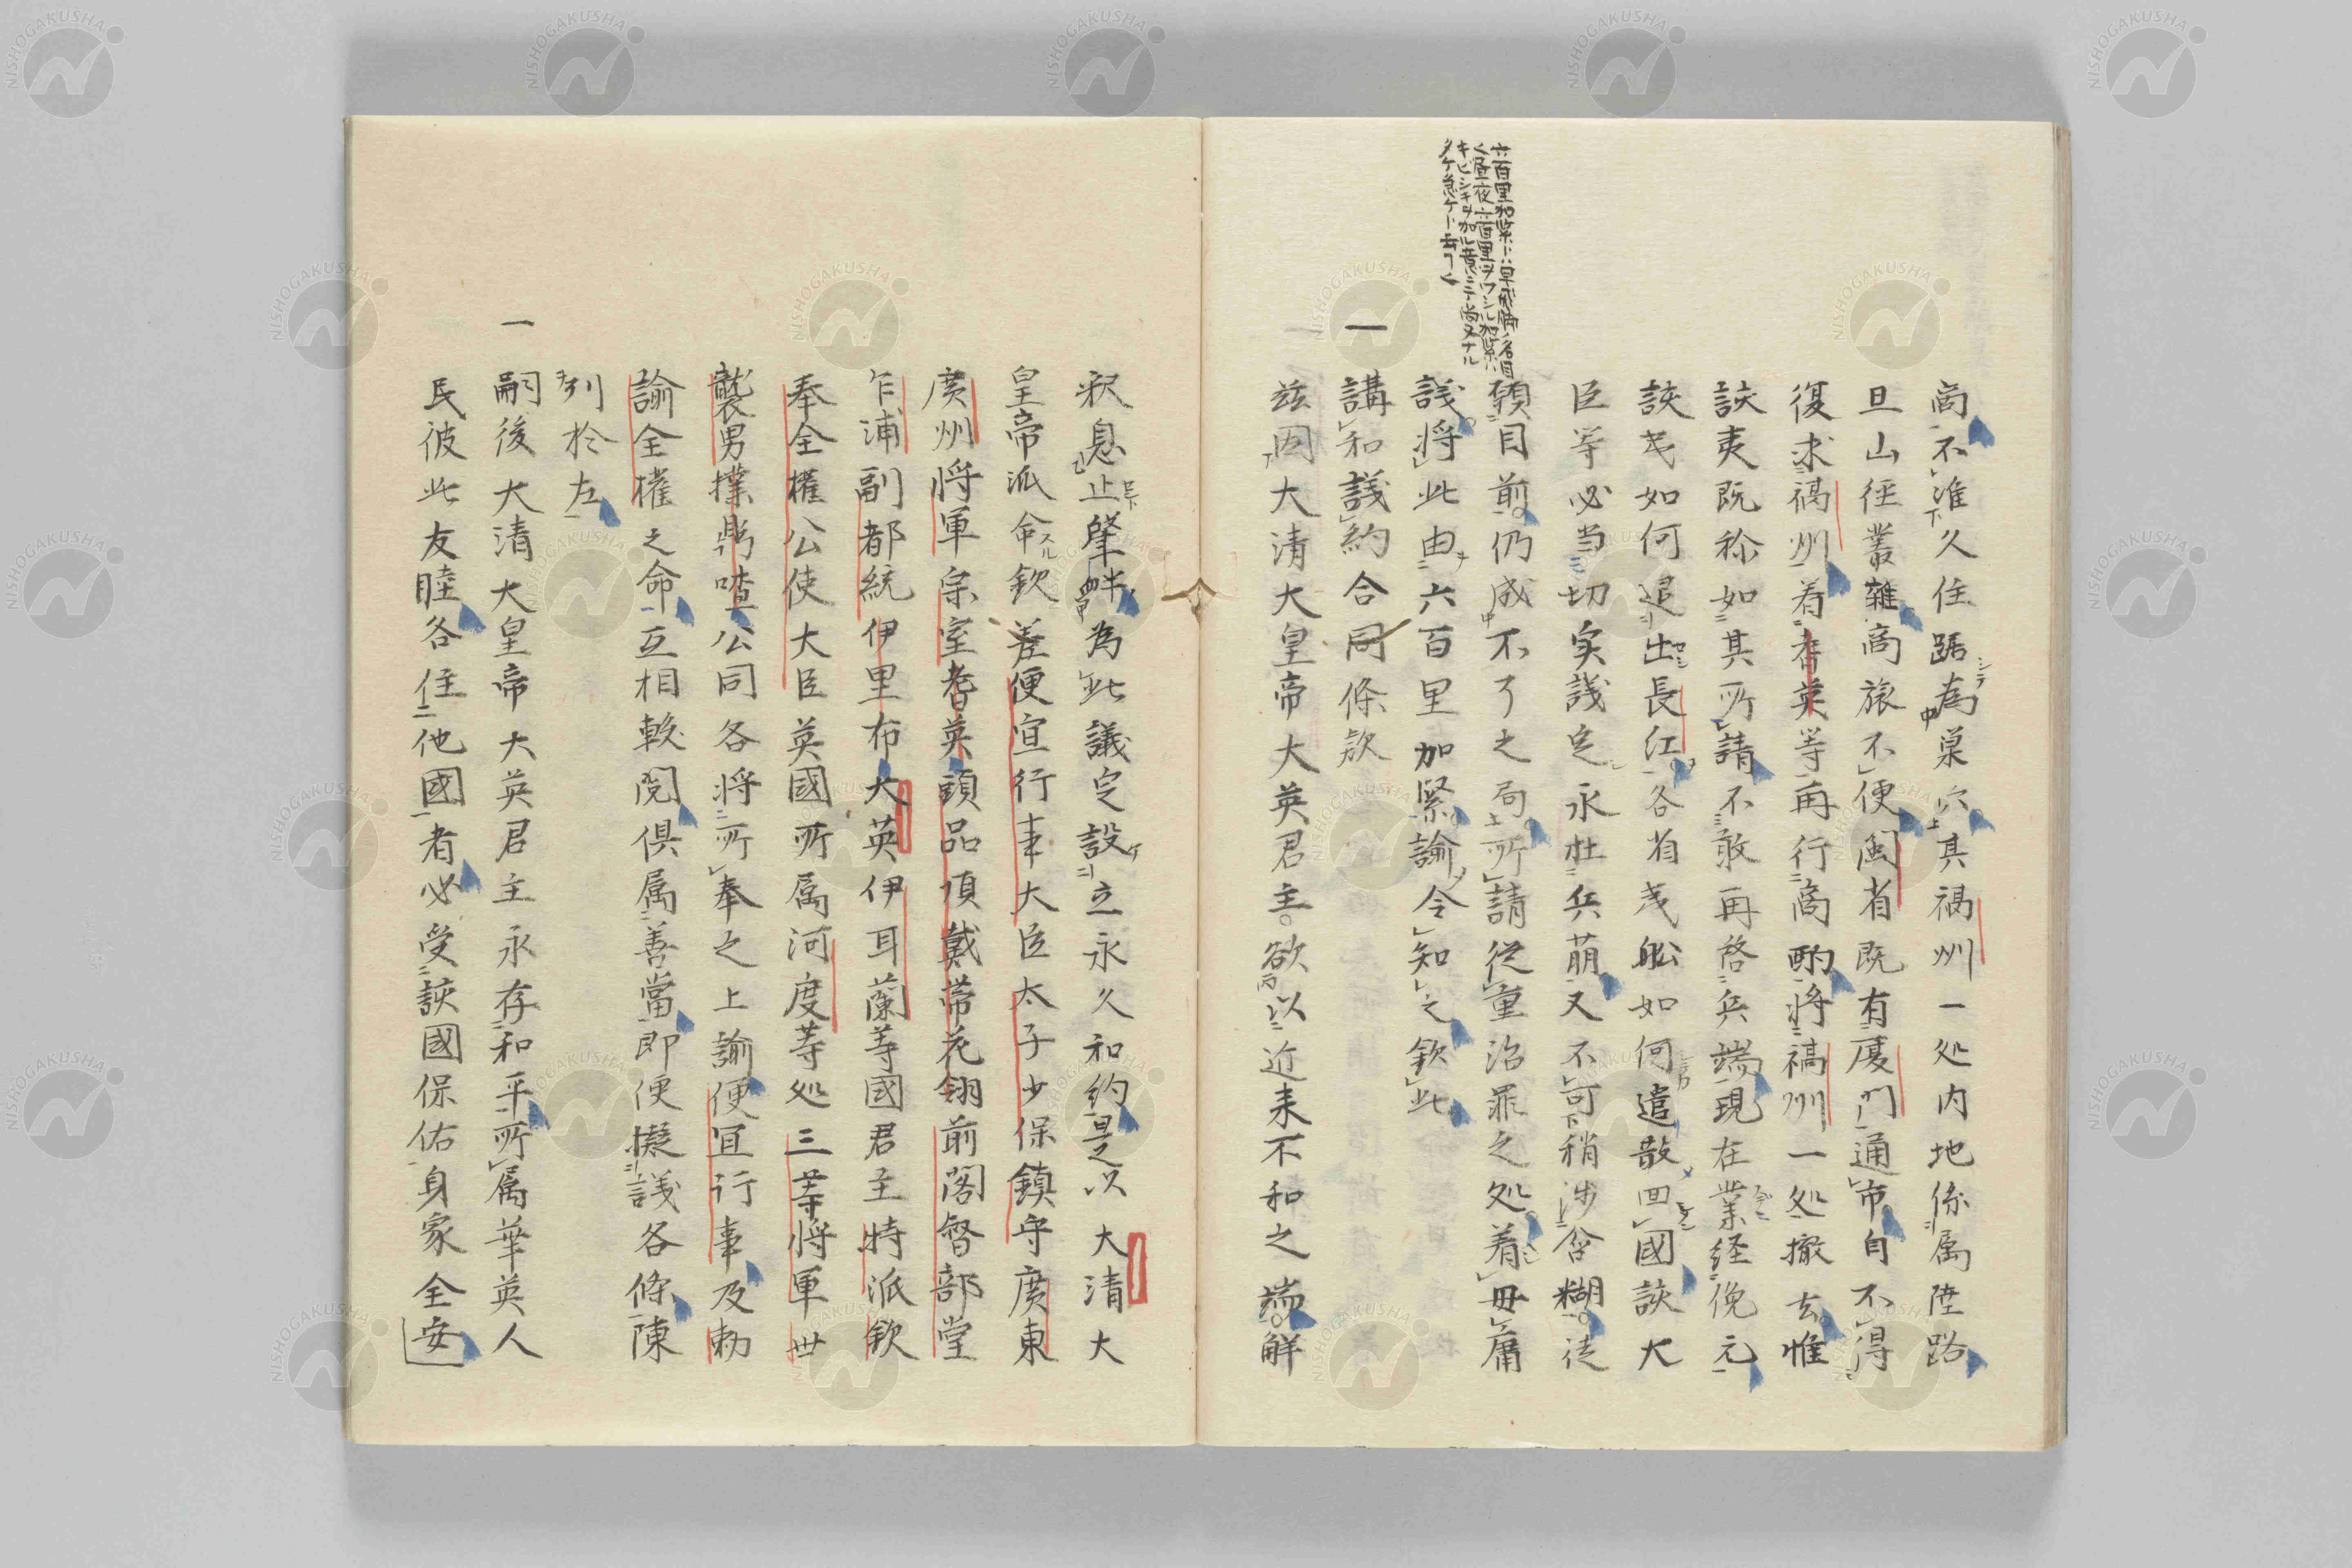 六百里加紧トハ早飛脚ノ名目
商不准久住踞為巣穴其福州一処内地係属陸路
且山径叢雜商旅不便閩省既有厦門通市自不得
復求福州着耆英等再行商酌将福州一処撤去惟
該夷既称如其所請不敢再啓兵端現在業経俛元
該夷如何退出長江各省夷舩如何遣散回國該大
臣等必当切実議定永杜兵萌又不可稍涉含糊徒
顧目前仍成不了之局所請従重治罪之処着毋庸
議将此由六百里加緊諭令知之欽此
一 講和議約合同條款
茲因大清大皇帝大英君主欲以近来不和之端解
釈息止肇衅為此議定設立永久和約是以大清大
皇帝派命欽差便宜行事大臣太子少保鎮守廣東
廣州将軍宗室耆英頭品頂戴帯花翎前閣督部堂
乍浦副都統伊里布大英伊耳蘭等國君主特派欽
奉全權公使大臣英國所属河度等処三等将軍世
襲男撲鼎喳公同各将所奉之上諭便宜行事及勅
諭全權之命互相較閲俱属善當即便擬議各條陳
列於左
一 嗣後大清大皇帝大英君主永存和平所属華英人
民彼此友睦各住他國者必受該國保佑身家全安
NISHOGAKUSHA